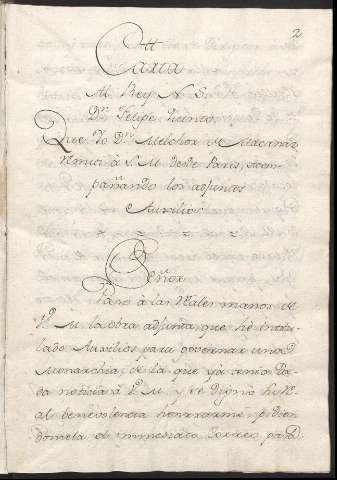 2
Carta
Al Rey N. S.
Dn. Felipe Quinto,
Que Yo Dn. Melchor de Macanaz
remiti à S. M. desde Paris, acom-
pañando los adjuntos
Auxilios
Señor
Paso à las Reales manos de
V. M. la obra adjunta que hè intitu-
lado Auxilios para governar una
Monarchia, de la que yà tenia da-
da noticia à V. M. y se dignò su Re-
al benevolencia honrrarme, pidien-
domela el immediato Correo